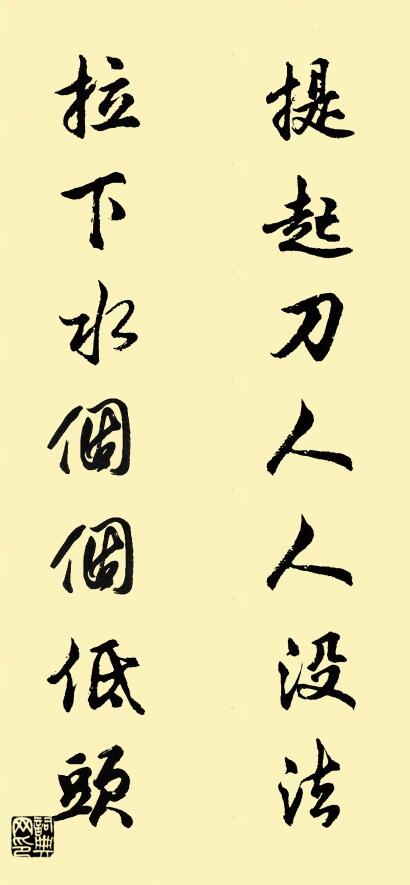 提起刀人人没法
拉下水個個低頭
詞典网印